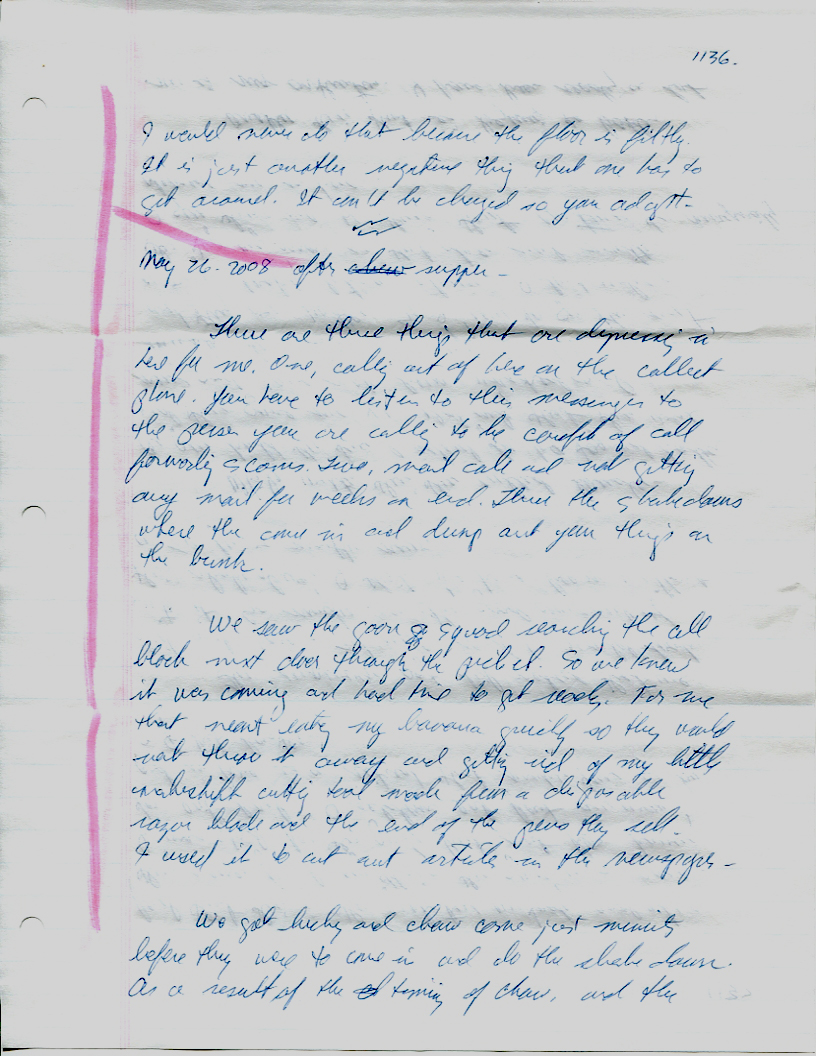 1136.
I would never do that because the floor is filthy.
It is just another negative thing that one has to
get around. It can't be changed so you adapt-
May 26. 2008 after chow supper -
There are three things that are depressing in
here for me. One, calling out of here on the collect
phone. You have to listen to this messenges to
the person you are calling to be careful of call
forwarding scams. Two, mail call and not getting
any mail for weeks on end. Three the shakedowns
where the come in and dump out your things on
the bunk.
We saw the goon squad searching the cell
block next door through the
So we knew
it was coming and had time to get ready. For me
that meant eating my banana quickly so they would
not throw it away and getting rid of my little
makeshift cutting tool made from a disposable
razor blade and the end of the pens they sell.
I used it to cut out articles in the newspaper-
We got lucky and chow come just minutes
before they were to come in and do the shake down.
As a result of the timing of chow, and the